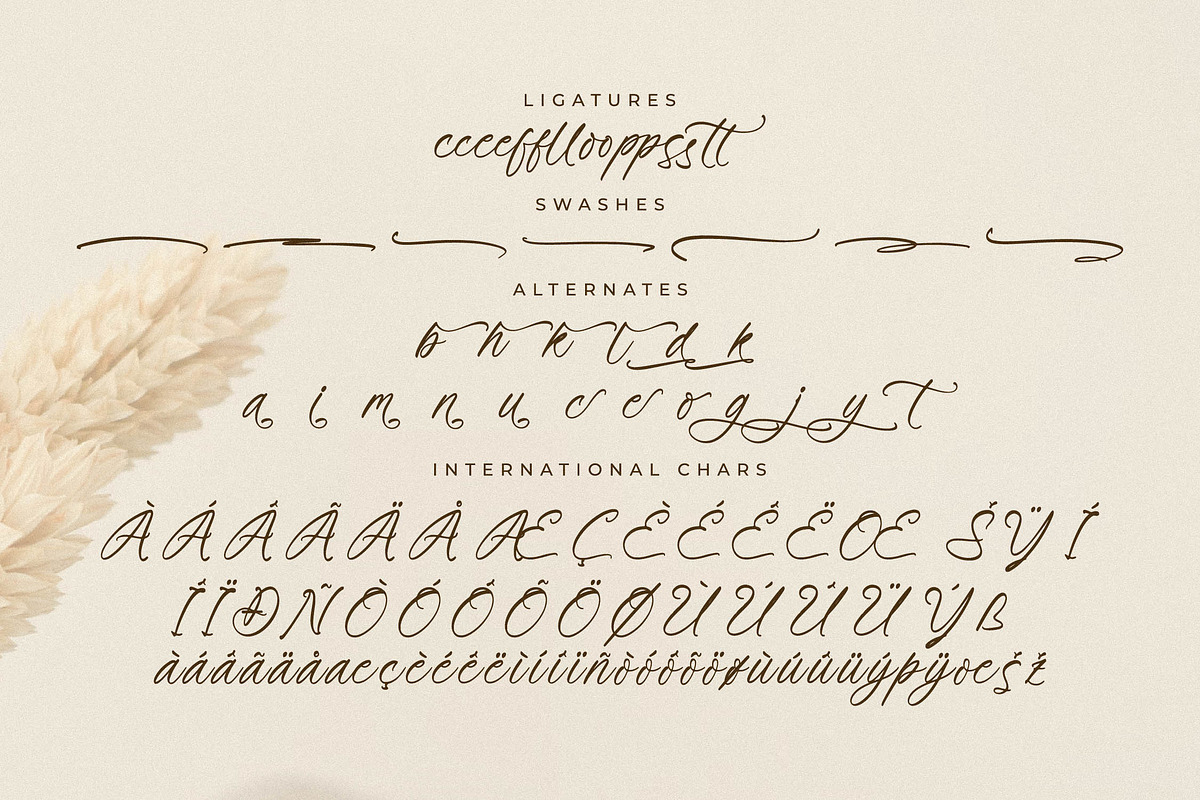 LIGATURES
cceeffllooppsstt
SWASHES
ALTERNATES
b h k l d k
a i m n u c e o g j y t
INTERNATIONAL CHARS
À Á Â Ã Ä Å Æ Ç È É Ê Ë Œ Š Ÿ Í
Î Ï Ð Ñ Ò Ó Ô Õ Ö Ø Ù Ú Û Ü Ý ß
àáâãäåæçèéêëìíîïñòóôõöøùúûüýþÿœšž